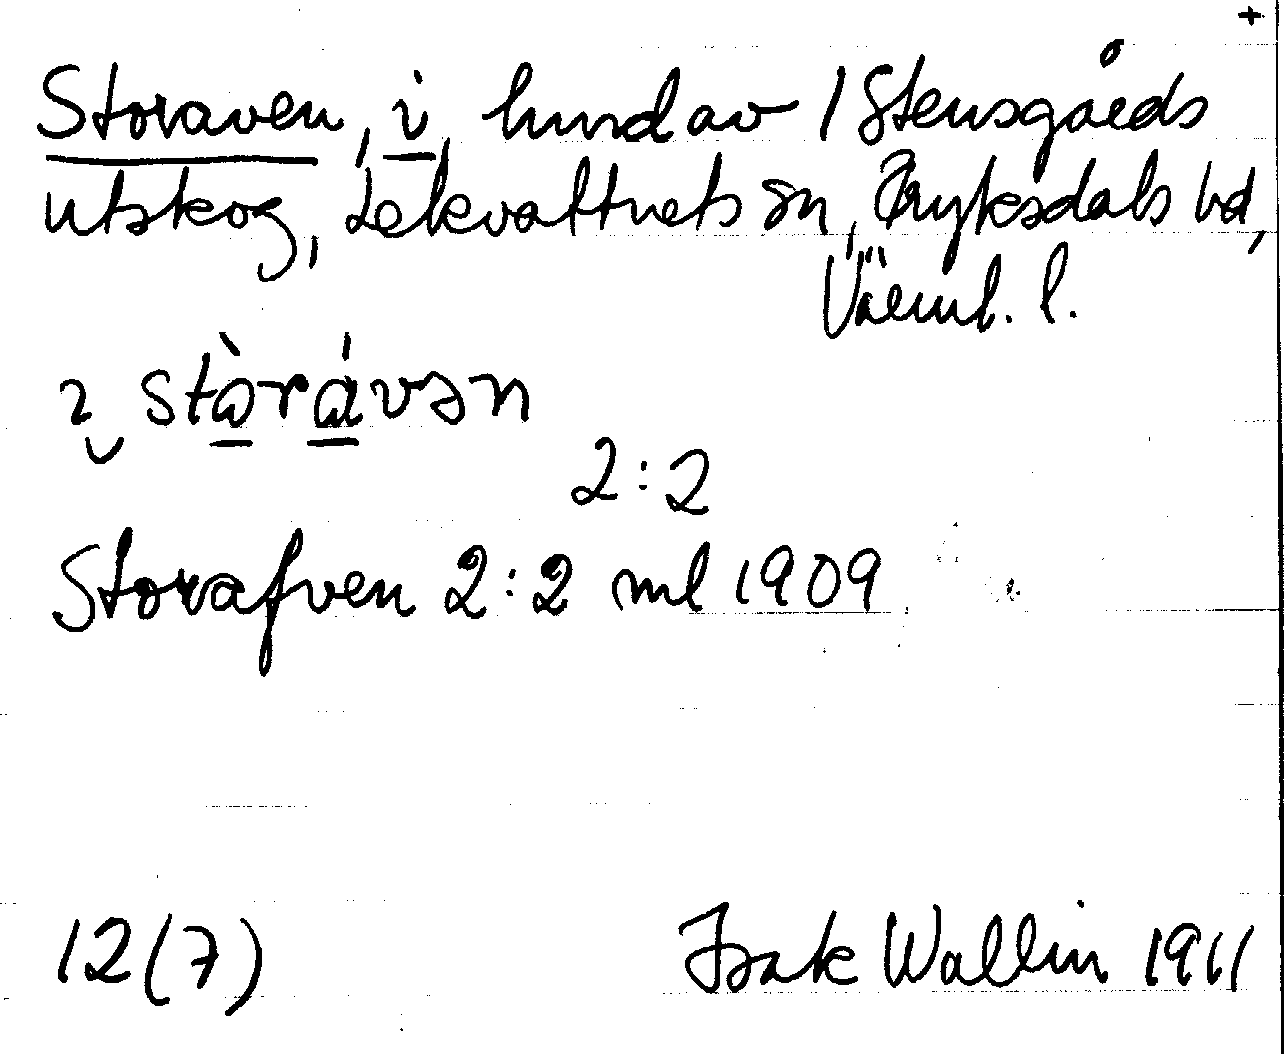 +
Storaven, i, hmd av 1 Stensgårds
utskog, Lekvattnets sn, Fryksdals hd,
Värml. l.
ı̮ stòrávən
2:2
Storafven 2:2 ml 1909
12(7) Isak Wallin 1911